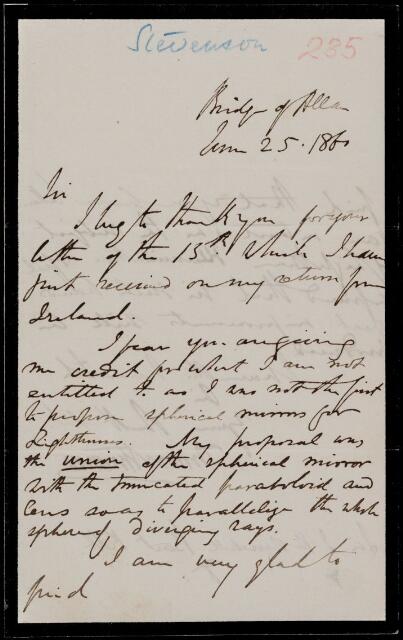 Stevenson 235
Bridge of Allan
June 25. 1860
Sir
I beg to thank you for your
letter of the 15th which I have
just received on my return from
Ireland.
I fear you are giving
me credit for what I am not
entitled to as I was not the first
to propose spherical mirrors for
Lighthouses. My proposal was
the union of the spherical mirror
with the truncated paraboloid and
lens so as to parallelize the whole
sphere of diverging rays.
I am very glad to
find